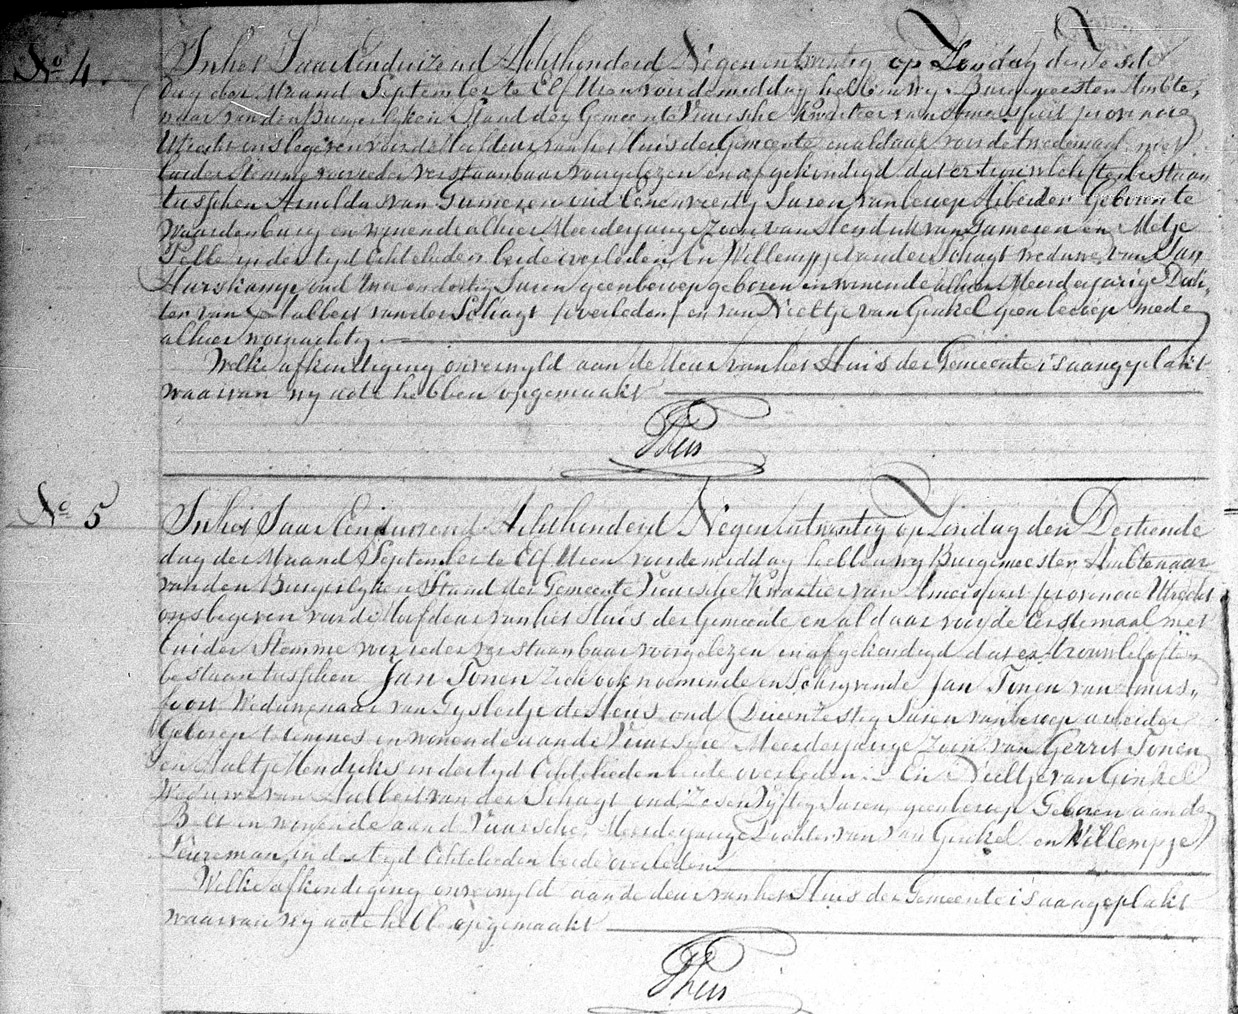 No 4.
In het Jaar Eenduizend Achthonderd Negenentwintig op Zondag den sesde
dag der Maand September te Elf Uren voordemiddag hebben wy Burgemeester Ambte,
naar van den Burgerlyken Stand der Gemeente Vuursche Kwartier van Amersfoort provincie
Utrecht ons begeven voor de Hoofddeur van het Huis der Gemeente en aldaar voor de twedemaal met
luider Stemme voor ieder verstaanbaar voorgelezen en afgekondigd dat er trouwbeloften bestaan
tusschen Arnoldus van Gameren oud Eenenveertig Jaren van beroep Arbeider Geboren te
Waardenburg en wonende alhier Meerderjarige Zoon van Hendrik van Gameren en Metje
in dertyd Echtelieden beide overleden En Willempje van der Schagt weduwe van Jan
Harskamp oud twee en dertig Jaren geen beroep geboren en wonende alhier Meerderjarige Doch,
ter van Halbert van der Schagt overleden en van Neeltje van Ginkel geen beroep mede
alhier woonachtig
Welke afkondiging onverwyld aan de deur van het Huis der Gemeente is aangeplakt
waarvan wy acte hebben opgemaakt
No 5
In het Jaar Eenduizend Achthonderd Negenentwintig op Zondag den Dertiende
dag der Maand September te Elf Uren voordemiddag hebben wy Burgemeester Ambtenaar
van den Burgerlyken Stand der Gemeente Vuursche Kwartier van Amersfoort provincie Utrecht
ons begeven voor de Hoofdeur van het Huis der Gemeente en aldaar voor de Eerstemaal met
luider Stemme voor ieder verstaanbaar voorgelezen en afgekondigd dat er trouwbeloften
bestaan tusschen Jan Tonen zich ook noemende en Schryvende Jan Tonen van Amers,,
foort Weduwenaar van Gysbertje de Heus oud Jaren van beroep arbeider
Geboren te Eemnes en wonende aan de Vuursche Meerderjarige Zoon van Gerrit Tonen
en Aaltje Hendriks in dertyd Echtelieden beide overleden En Neeltje van Ginkel
Weduwe van Halbert van der Schagt oud Zes en Vyftig Jaren geen beroep Geboren aan de
Bilt en wonende aan d Vuursche Meerderjarige Dochter van van Ginkel en Willempje
in dertyd Echtelieden beide overleden
Welke afkondiging onverwyld aan de deur van het Huis der Gemeente is aangeplakt
waarvan wy acte hebb opgemaakt